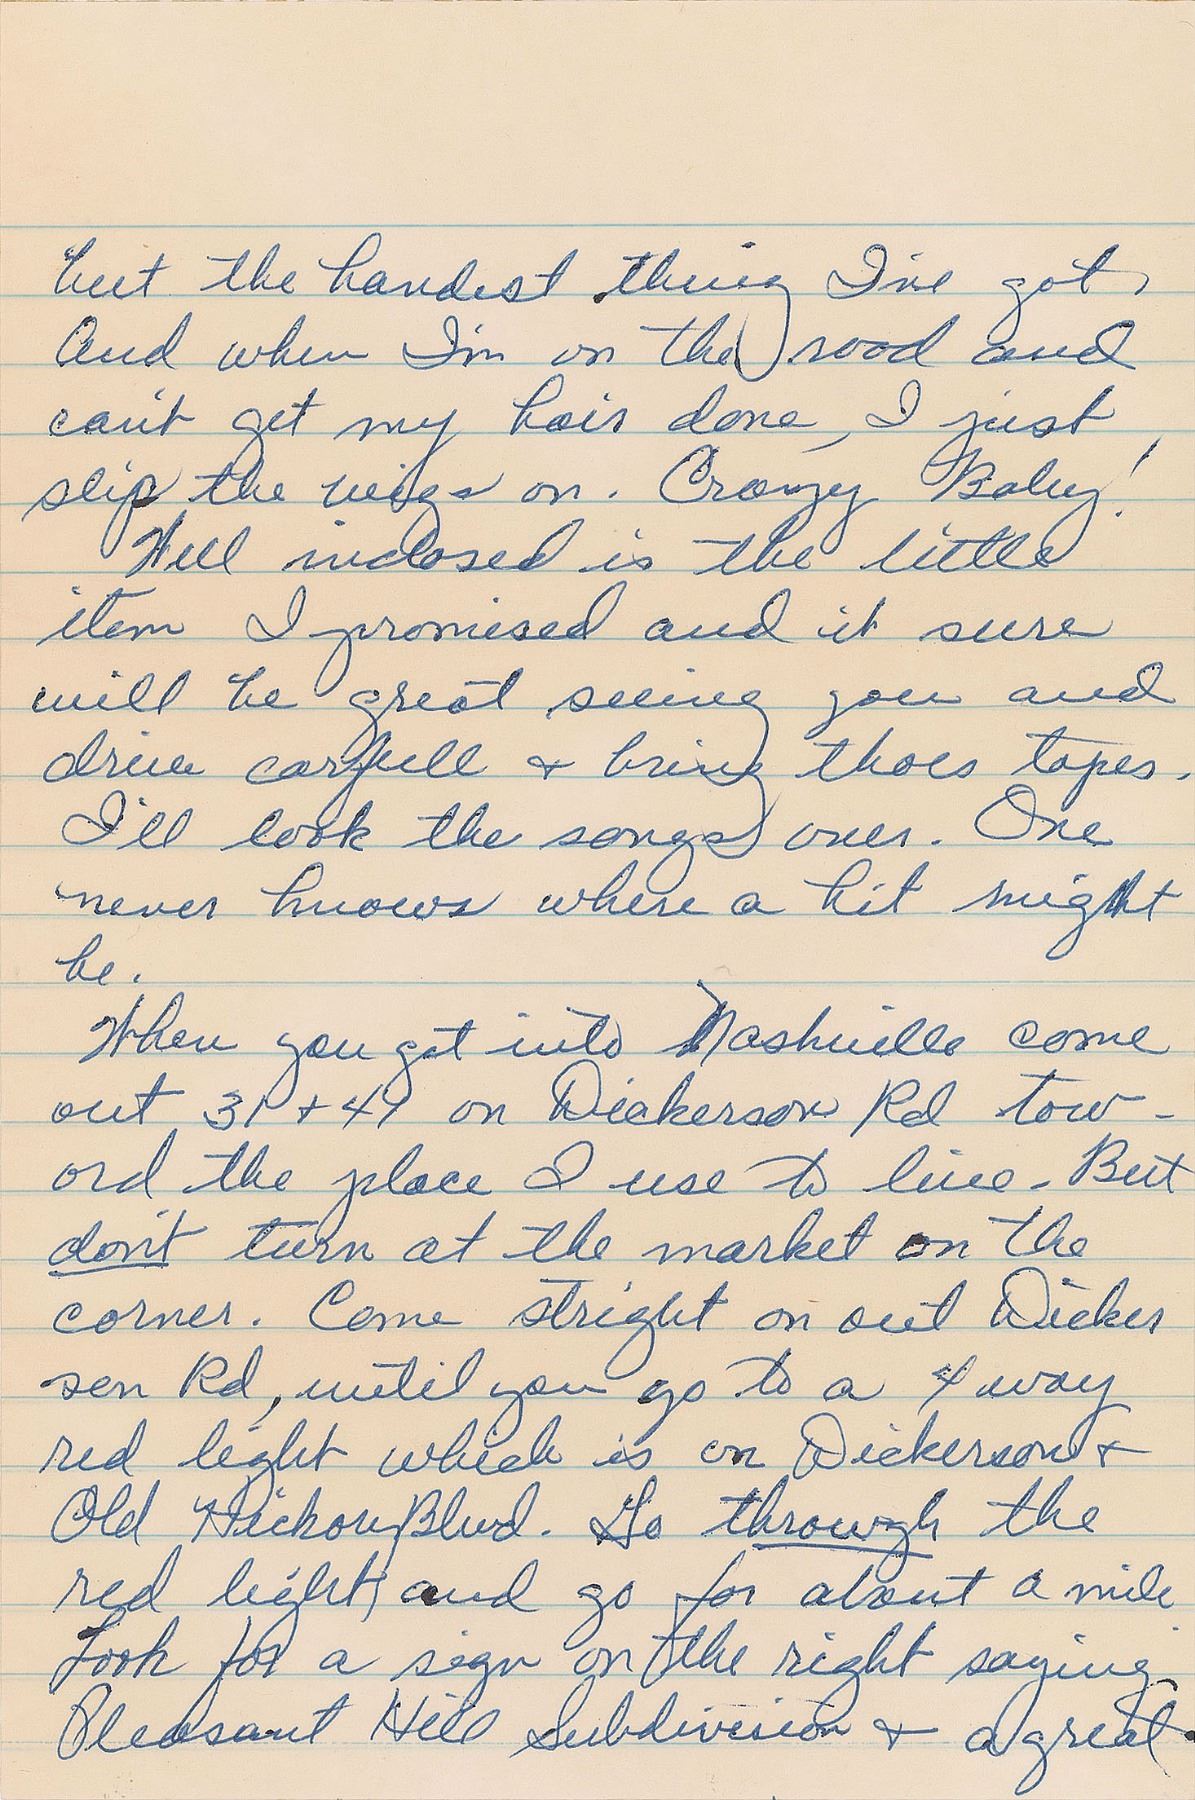 but the handest thing I've got,
And when I'm on the road and
can't get my hair done, I just
slip the wigs on. Crazy Baby!
Well inclosed is the little
item I promised and it sure
will be great seeing you and
drive carfull & bring thoes tapes.
I'll look the songs over. One
never knows where a hit might
be.
When you get into Nashville come
out 31 + 41 on Dickerson Rd tow-
ord the place I use to live. But
don't turn at the market on the
corner. Come stright on out Dicker
sen Rd, until you go to a 4 way
red light which is on Dickerson &
Old Hickory Blvd. Go through the
red light and go for about a mile
Look for a sign on the right saying
Pleasant Hill Subdivision & a great